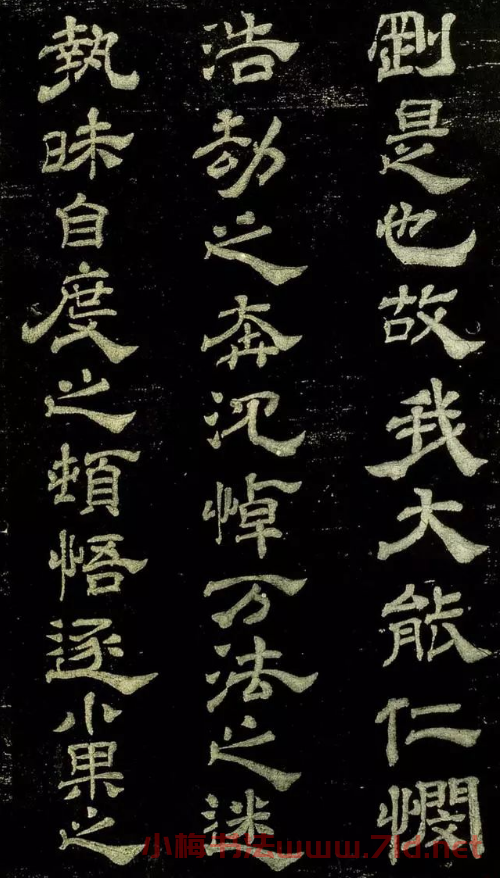 剛是也故我大能仁憫
浩劫之奔沉悼万法之迷
執昧自度之頓悟逐小果之
小梅书法www.7ld.net